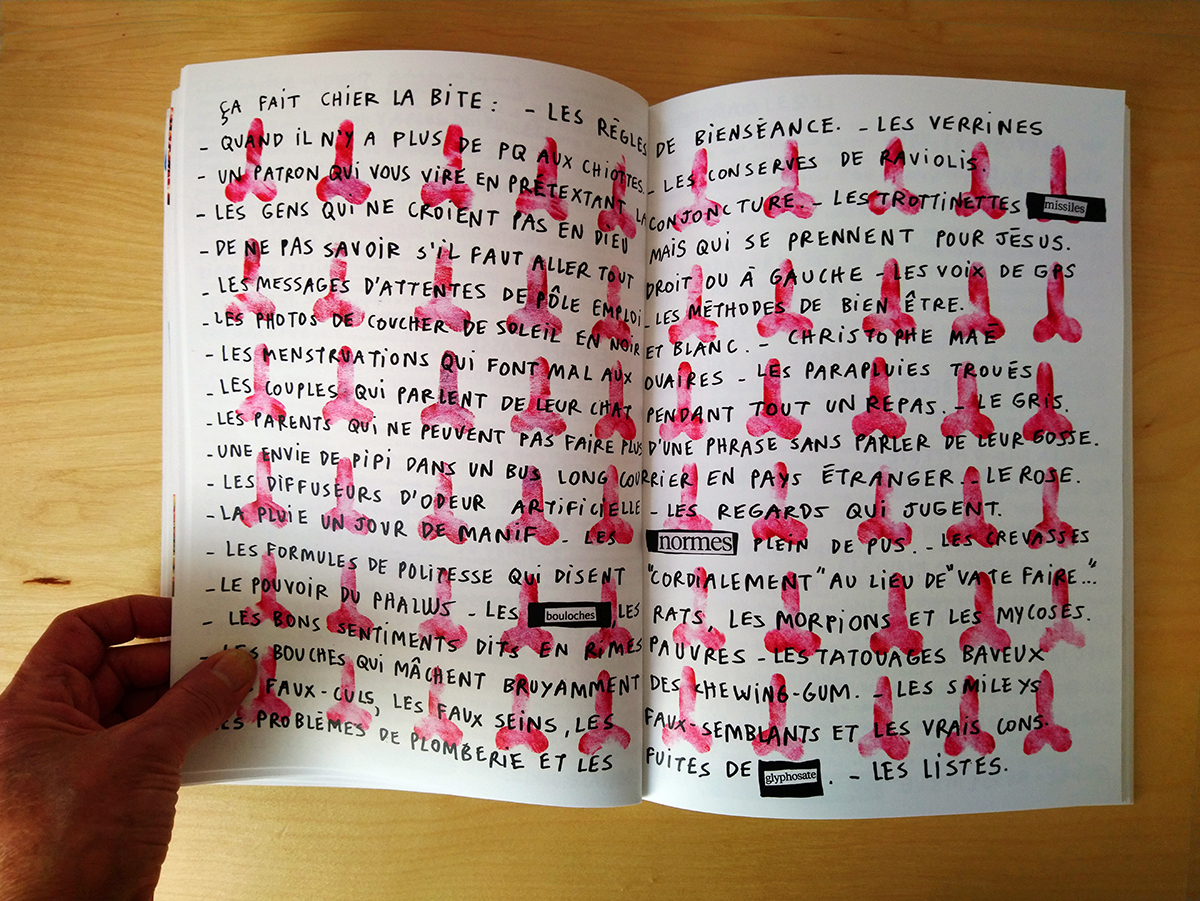 ÇA FAIT CHIER LA BITE : - LES RÈGLES DE BIENSÉANCE. - LES VERRINES
- QUAND IL N'Y A PLUS DE PQ AUX CHIOTTES - LES CONSERVES DE RAVIOLIS.
- UN PATRON QUI VOUS VIRE EN PRÉTEXTANT LA CONJONCTURE. - LES TROTTINETTES missiles
- LES GENS QUI NE CROIENT PAS EN DIEU MAIS QUI SE PRENNENT POUR JÉSUS.
- DE NE PAS SAVOIR S'IL FAUT ALLER TOUT DROIT OU À GAUCHE - LES VOIX DE GPS
- LES MESSAGES D'ATTENTES DE PÔLE EMPLOI - LES MÉTHODES DE BIEN ÊTRE.
- LES PHOTOS DE COUCHER DE SOLEIL EN NOIR ET BLANC. - CHRISTOPHE MAÉ
- LES MENSTRUATIONS QUI FONT MAL AUX OVAIRES - LES PARAPLUIES TROUÉS
- LES COUPLES QUI PARLENT DE LEUR CHAT PENDANT TOUT UN REPAS. - LE GRIS.
- LES PARENTS QUI NE PEUVENT PAS FAIRE PLUS D'UNE PHRASE SANS PARLER DE LEUR GOSSE.
- UNE ENVIE DE PIPI DANS UN BUS LONG COURRIER EN PAYS ÉTRANGER. - LE ROSE.
- LES DIFFUSEURS D'ODEUR ARTIFICIELLE - LES REGARDS QUI JUGENT.
- LA PLUIE UN JOUR DE MANIF - LES normes PLEIN DE PUS. - LES CREVASSES
- LES FORMULES DE POLITESSE QUI DISENT "CORDIALEMENT" AU LIEU DE "VA TE FAIRE..."
- LE POUVOIR DU PHALLUS - LES bouloches LES RATS, LES MORPIONS ET LES MYCOSES.
- LES BONS SENTIMENTS DITS EN RIMES PAUVRES - LES TATOUAGES BAVEUX
- LES BOUCHES QUI MÂCHENT BRUYAMMENT DES CHEWING-GUM. - LES SMILEYS
FAUX-CULS, LES FAUX SEINS, LES FAUX-SEMBLANTS ET LES VRAIS CONS.
LES PROBLÈMES DE PLOMBERIE ET LES FUITES DE glyphosate. - LES LISTES.